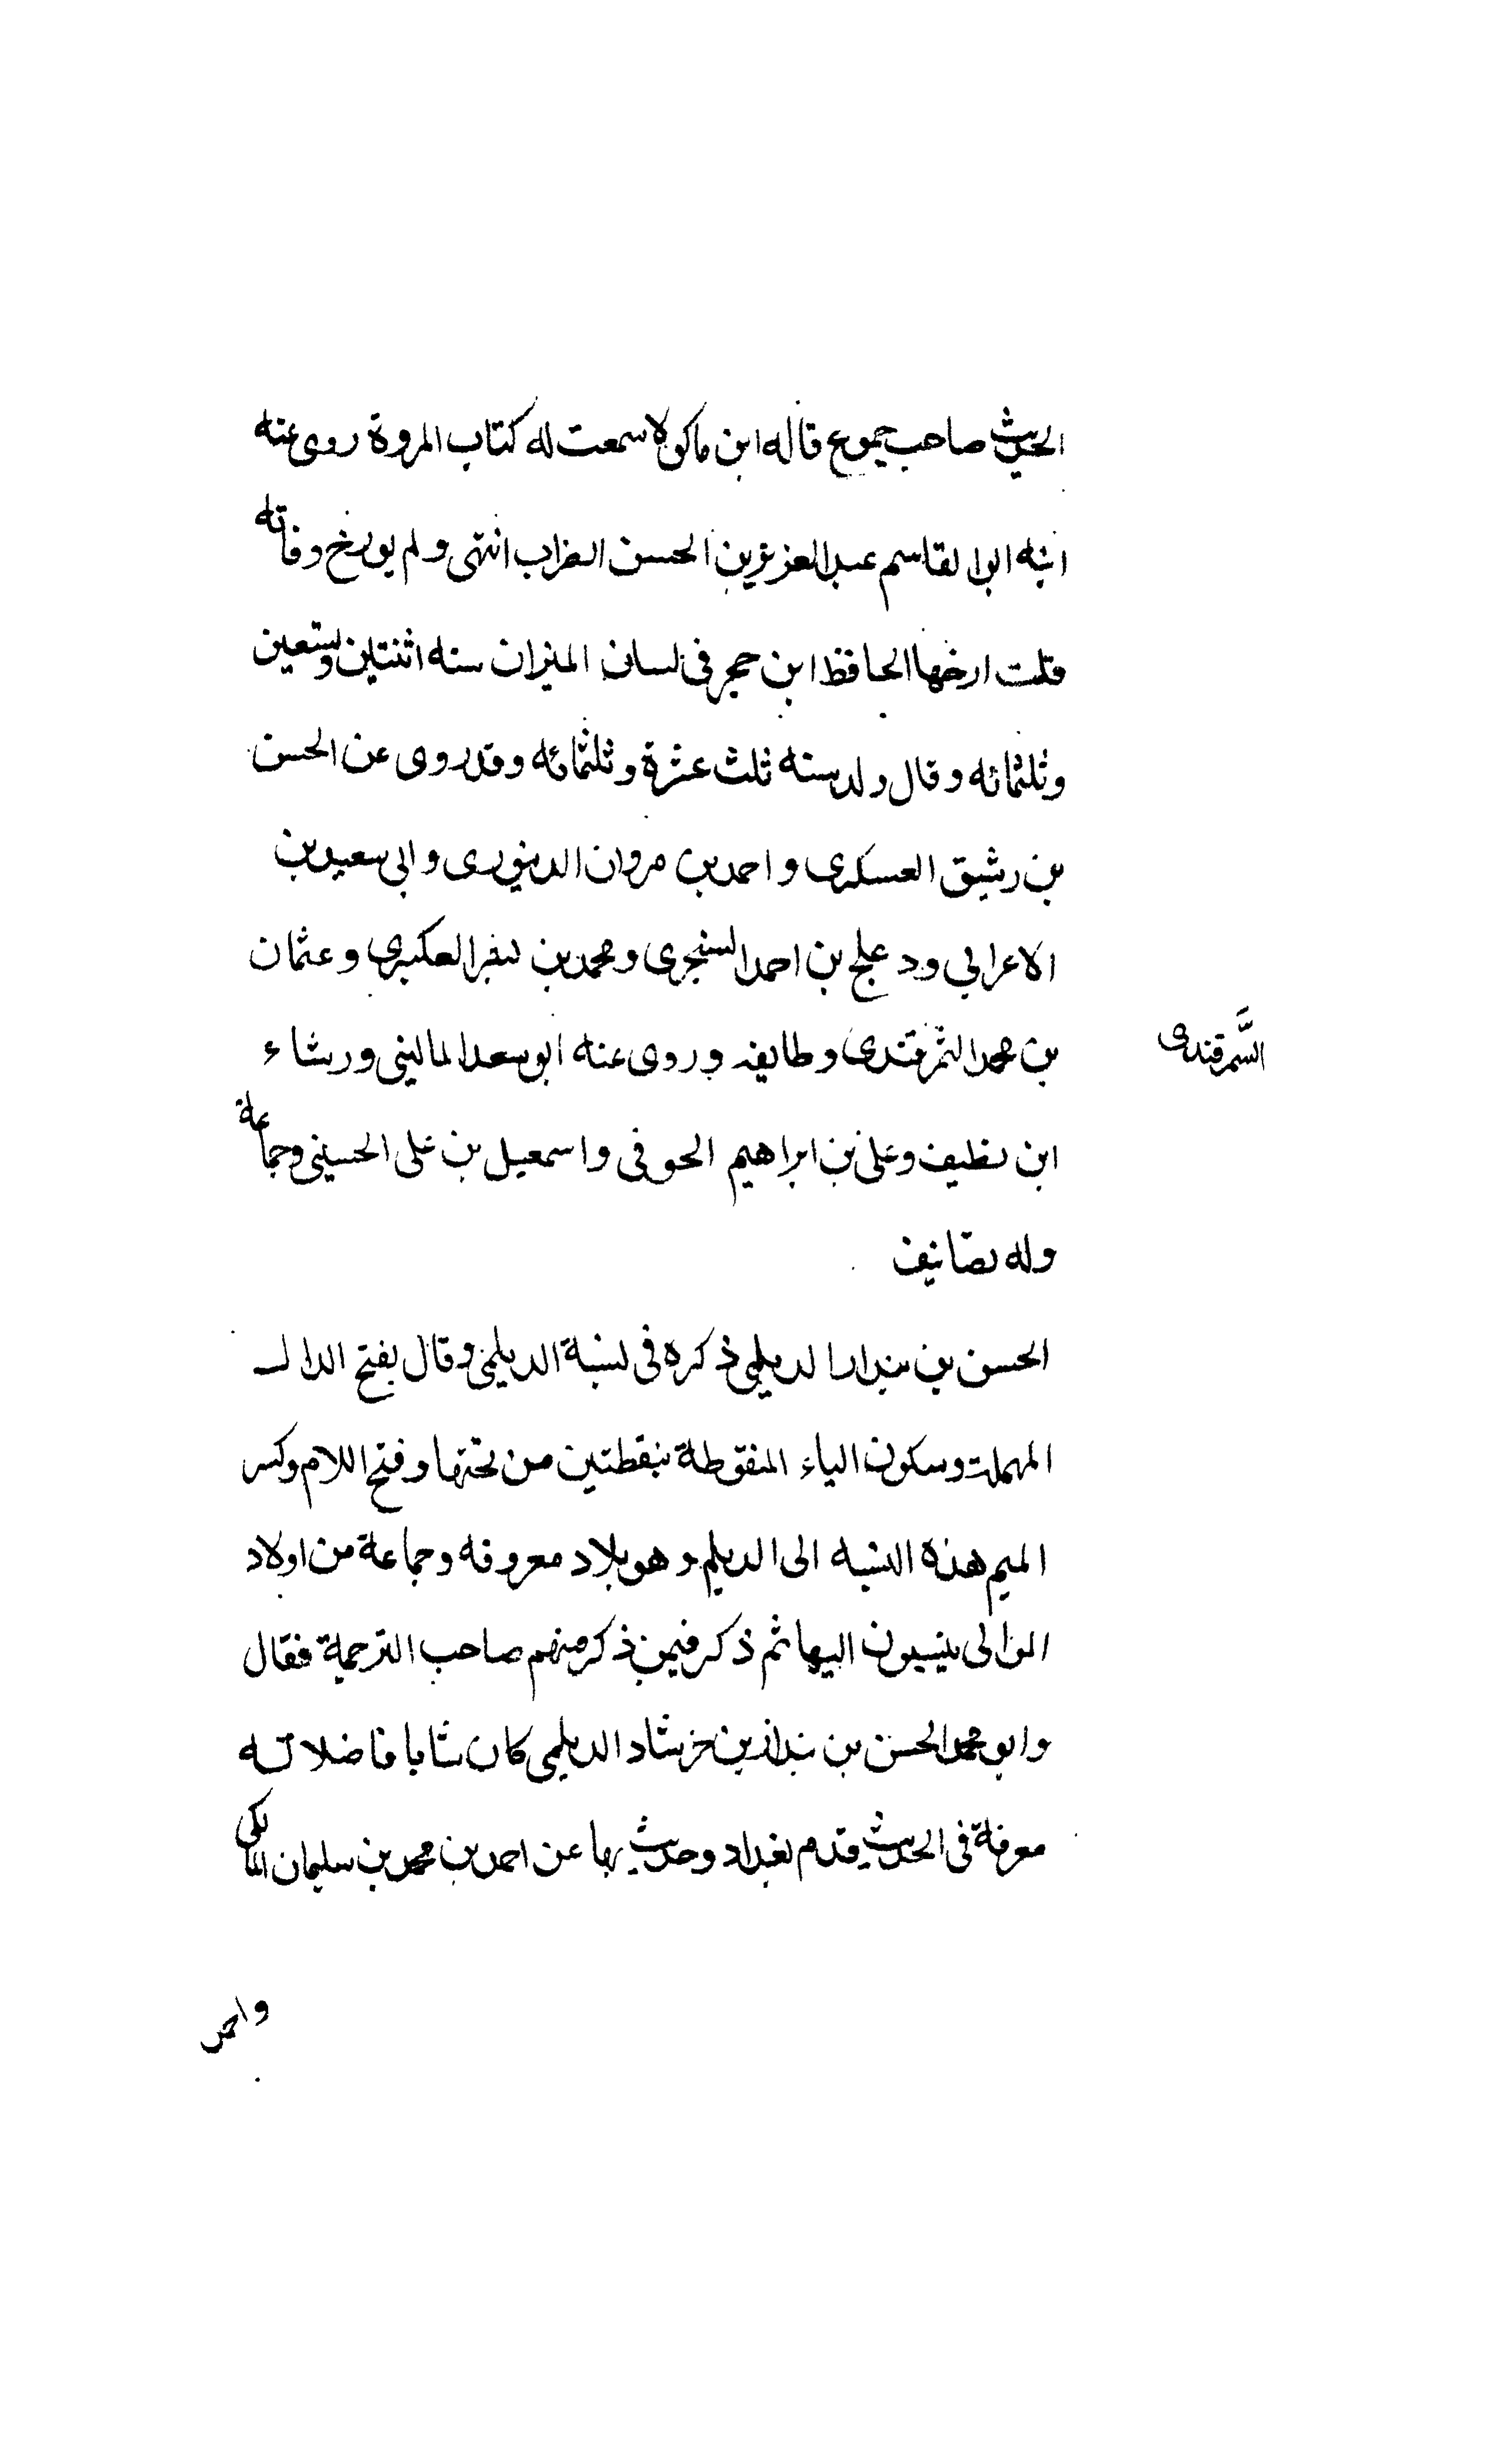 الحديث صاحب جموع قاله ابن ماكولا سمعت له كتاب المروة روى عنه
ابنه ابوا لقاسم عبد العزيز بن الحسن الضراب انتهى ولم يورخ وفاته
قلت ارخها الحافظ ابن حجر فى لسان الميزان سنه اثنتين وتسعين
وثلثمائه وقال ولد سنه ثلث عشرة وثلثمائه وقد روى عن الحسن
بن رشيق العسكرى واحمد بن مروان الدينورى وابى سعيد بن
الاعرابي ودعلج بن احمد السنجرى ومحمد بن العكبرى وعثمان
بن محمد الثمرقندى وطايفه وروى عنه ابو سعد الماليني ورشاء
السَّمرقندى
ابن نظيف وعلى بن ابراهيم الحوفى واسمعيل بن على الحسينى وجماعة
وله تصانيف
الحسن بن بندار الديلمي ذكره فى نسبة الديلمى وقال بفتح الدال
المهملة وسكون الياء المنقوطة بنقطتين من تحتها وفتح اللام وكسر
الميم هذه النسبه الى الديلم وهو بلاد معروفه وجماعة من اولاد
الموالى ينسبون اليها ثم ذكر فيمن ذكر منهم صاحب الترجمة فقال
وابو محمد الحسن بن بندار بن خرشاد الديلمى كان شابا فاضلا له
معرفة فى الحديث قدم بغداد وحدث بها عن احمد بن محمد بن سليمان المالكى
واحمد